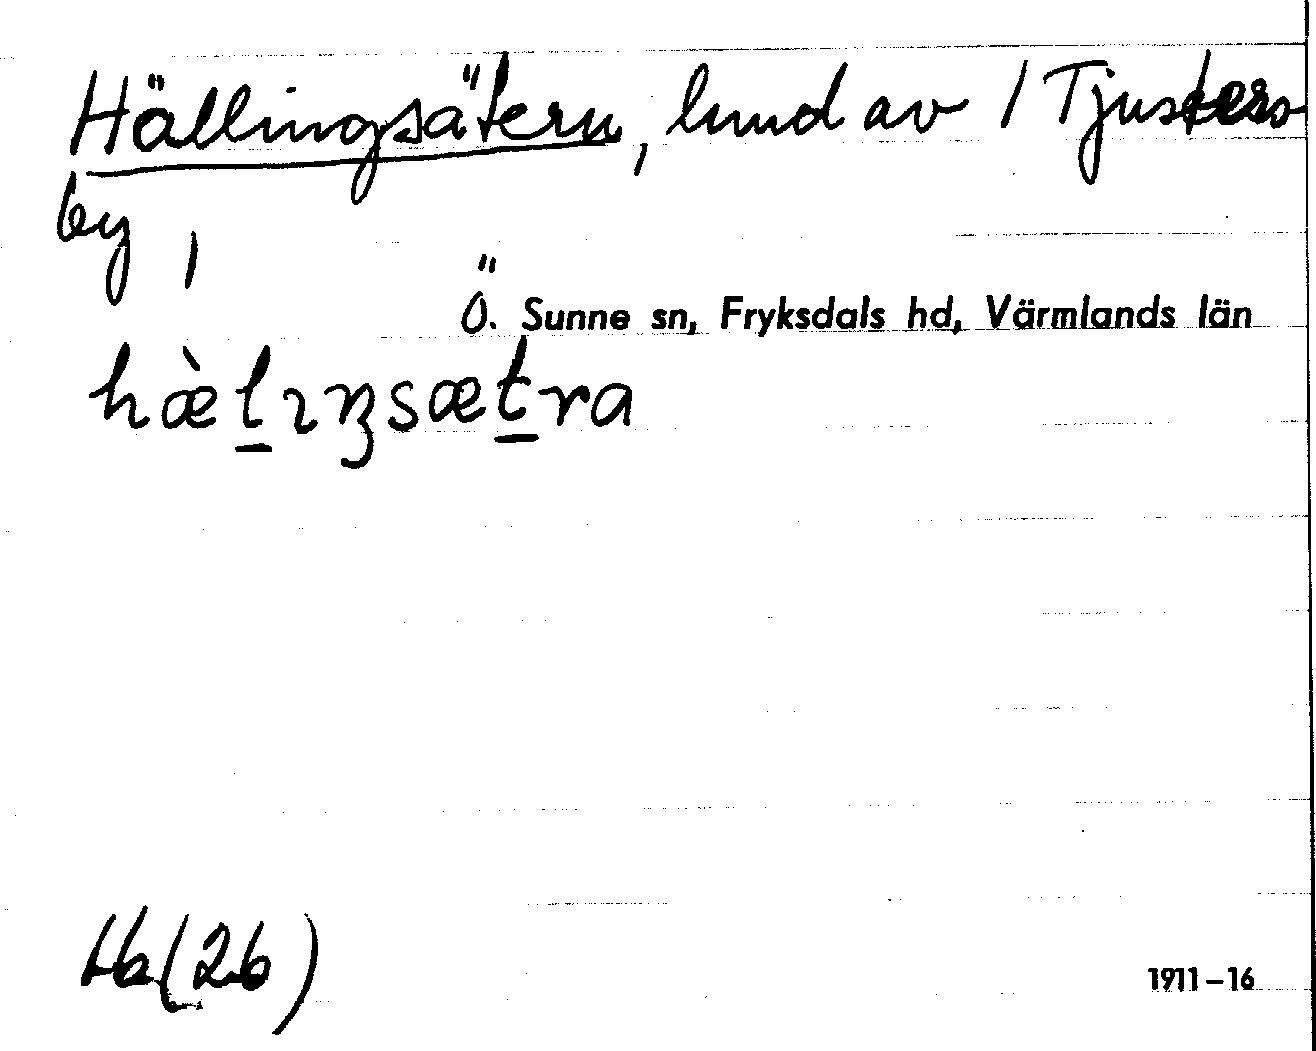 Hällingsätern, lund av 1 Tjusters-
by,
Ö. Sunne sn, Fryksdals hd, Värmlands län
hæ̀l̠ıŋsæt̠ra
Hb (26)
1911–16